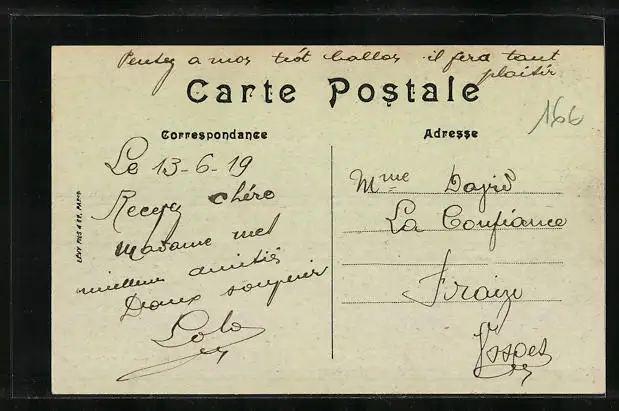 Pensez a mos triót ballos il fera tant
plaisir
Carte Postale
166
Correspondance
Le 13-6-19
Recevez chére
Madame mes
meilleures amitiés
Doux soupenir
Lolo
Adresse
Mme David
La Confiance
Fraize
Vosges
LÉVY FILS & Cie, PARIS